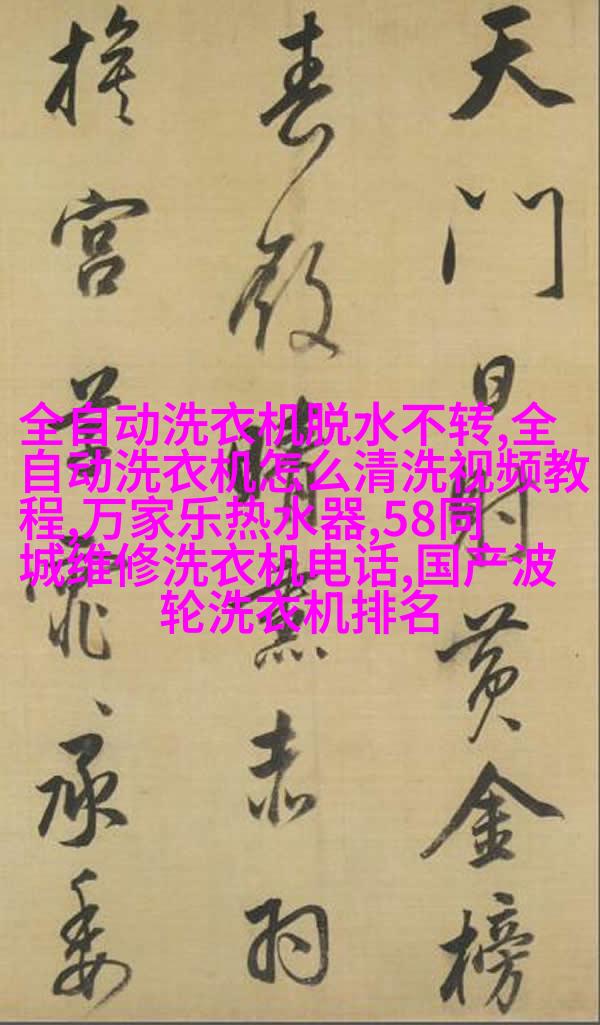 天門日射黄金榜
春殿晴熏赤羽
旗宮草霏〻承委
全自动洗衣机脱水不转,全
自动洗衣机怎么清洗视频教
程,万家乐热水器,58同
城维修洗衣机电话,国产波
轮洗衣机排名